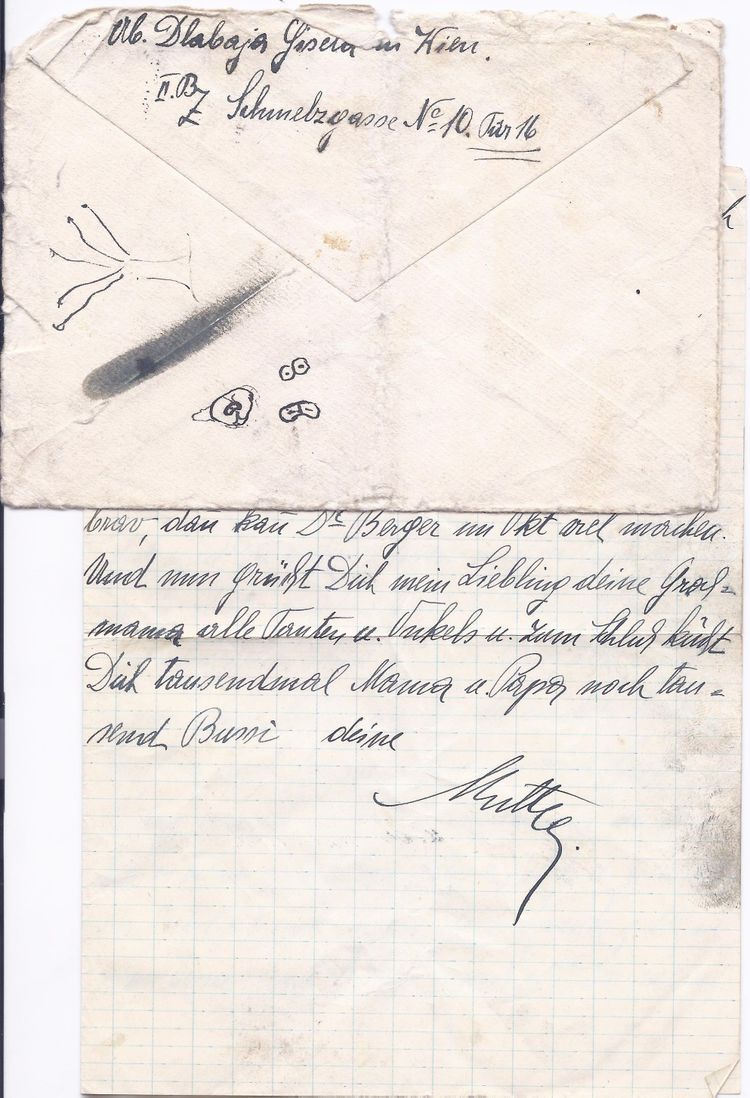 Ab. Dlabaja Gisela in Wien.
II. Bz Schmelzgasse No 10. Tür 16
brav, dan̄ kan̄ Dr Berger im Okt viel machen.
Und nun grüßt Dich mein Liebling deine Groß=
mama alle Tanten u. Onkels u. zum Schluß küßt
Dich tausendmal Mama u. Papa noch tau=
send Bussi deine
Mutter.